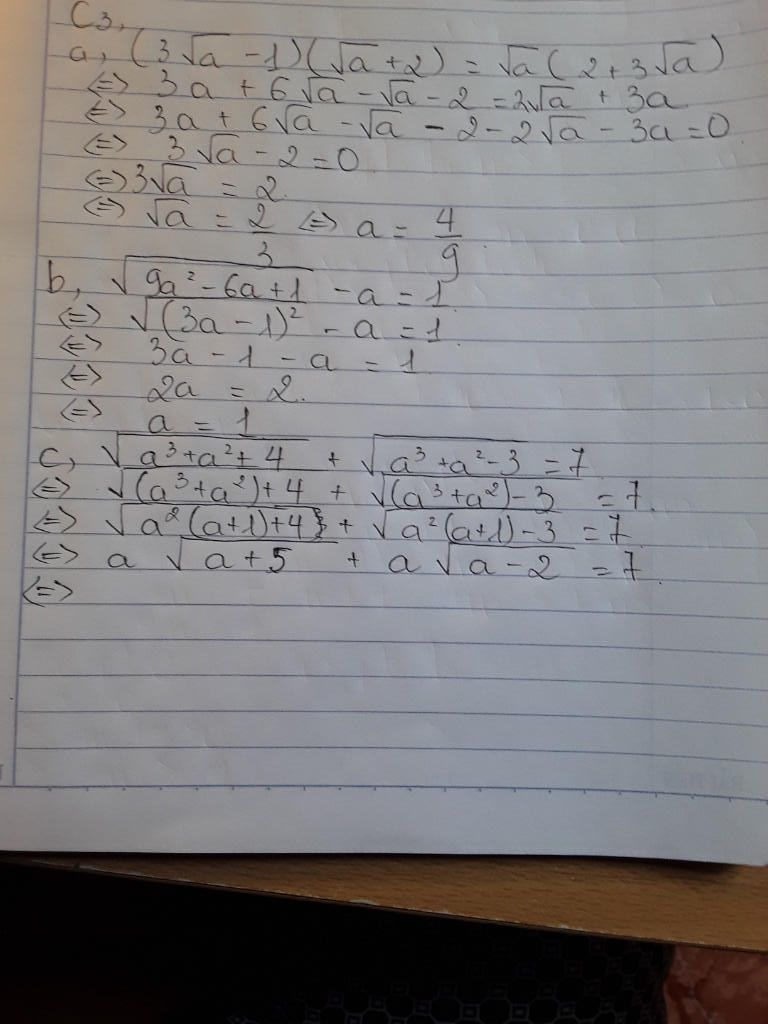 C3,
a, (3√a - 1)(√a + 2) = √a(2 + 3√a)
<=> 3a + 6√a - √a - 2 = 2√a + 3a
<=> 3a + 6√a - √a - 2 - 2√a - 3a = 0
<=> 3√a - 2 = 0
<=> 3√a = 2
<=> √a = 2/3 <=> a = 4/9
b, √(9a² - 6a + 1) - a = 1
<=> √((3a - 1)²) - a = 1
<=> 3a - 1 - a = 1
<=> 2a = 2
<=> a = 1
c, √(a³ + a² + 4) + √(a³ + a² - 3) = 7
<=> √((a³ + a²) + 4) + √((a³ + a²) - 3) = 7
<=> √(a²(a + 1) + 4) + √(a²(a + 1) - 3) = 7
<=> a√(a + 5) + a√(a - 2) = 7
<=>